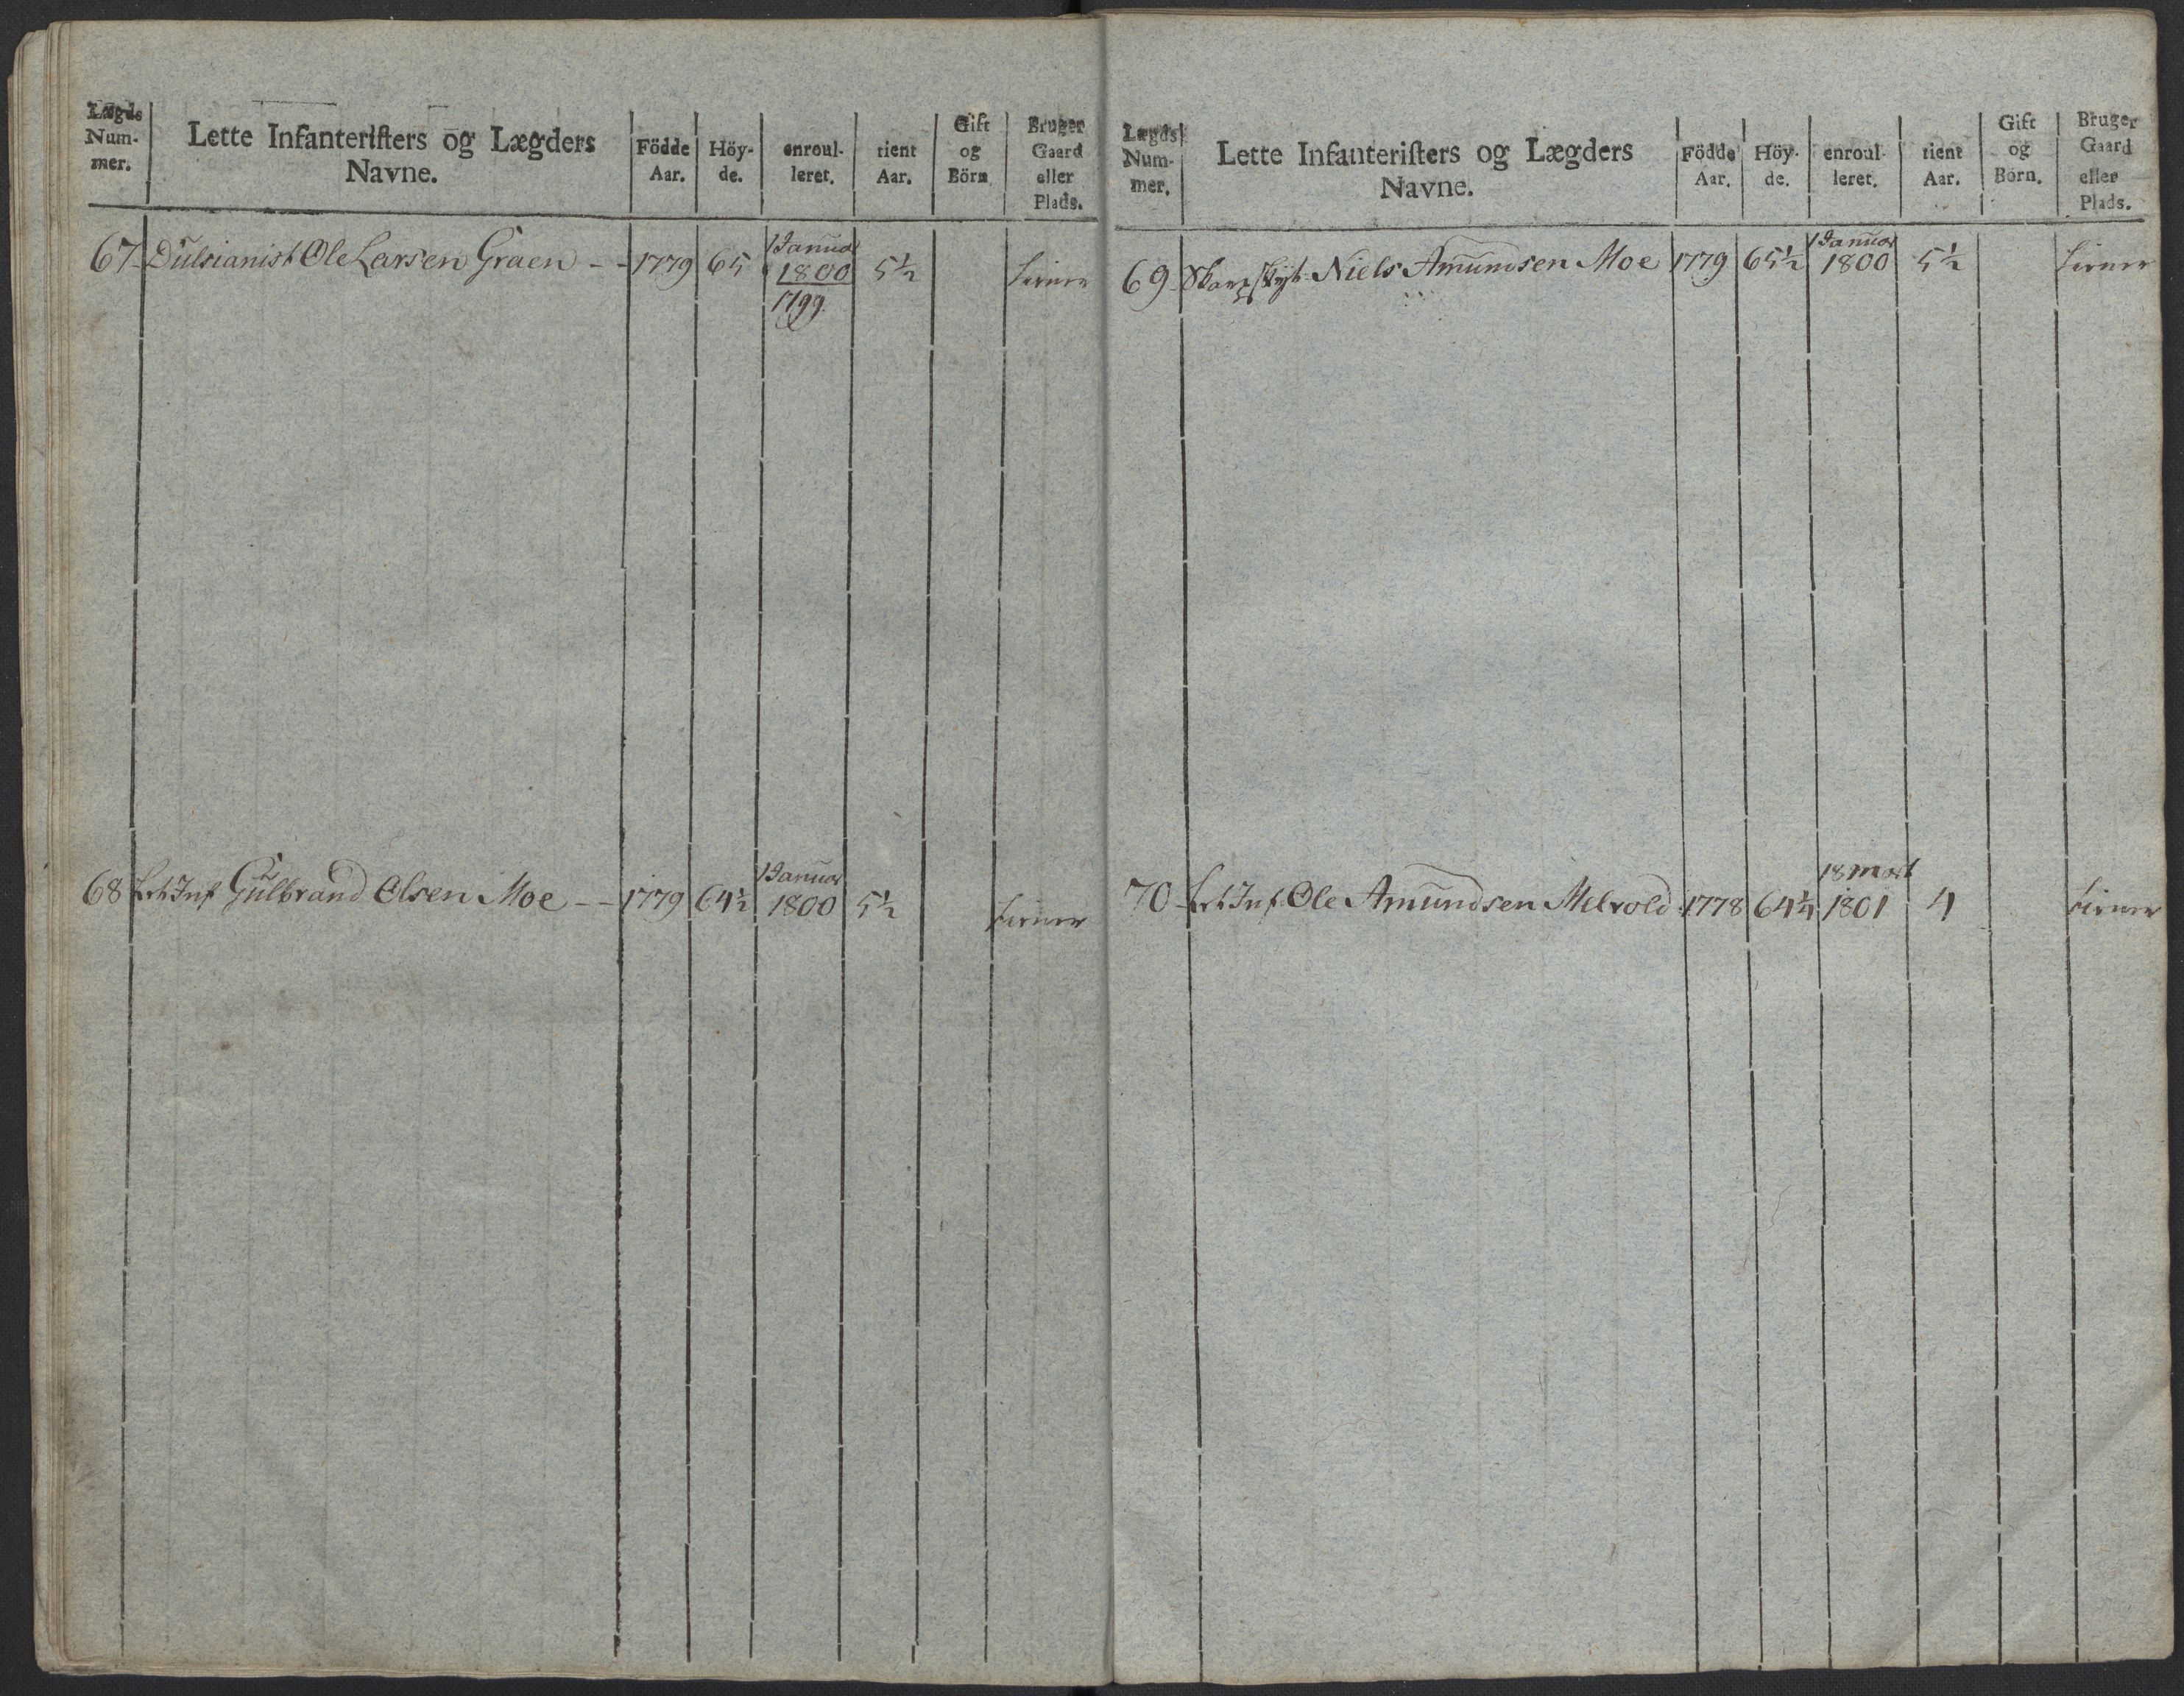 Lægds Num- mer. | Lette Infanterifters og Lægders Navne. | Födde Aar. | Höy- de. | enroul- leret. | tient Aar. | Gift og Börn | Bruger Gaard eller Plads.
67 Ole Larsen Graen - - 1779 65 1 Januar 1800 5½ tiener
1799
68 Let Inf Gulbrand Olsen Moe - - 1779 64½ 1 Januar 1800 5½ tiener
Lægds Num- mer. | Lette Infanterifters og Lægders Navne. | Födde Aar. | Höy- de. | enroul- leret. | tient Aar. | Gift og Börn. | Bruger Gaard eller Plads.
69 Skarpskyt: Niels Amundsen Moe 1779 65½ 1 Januar 1800 5½ tiener
70 Let Inf Ole Amundsen Melvold 1778 64¼ 18 Mart 1801 4 tiener